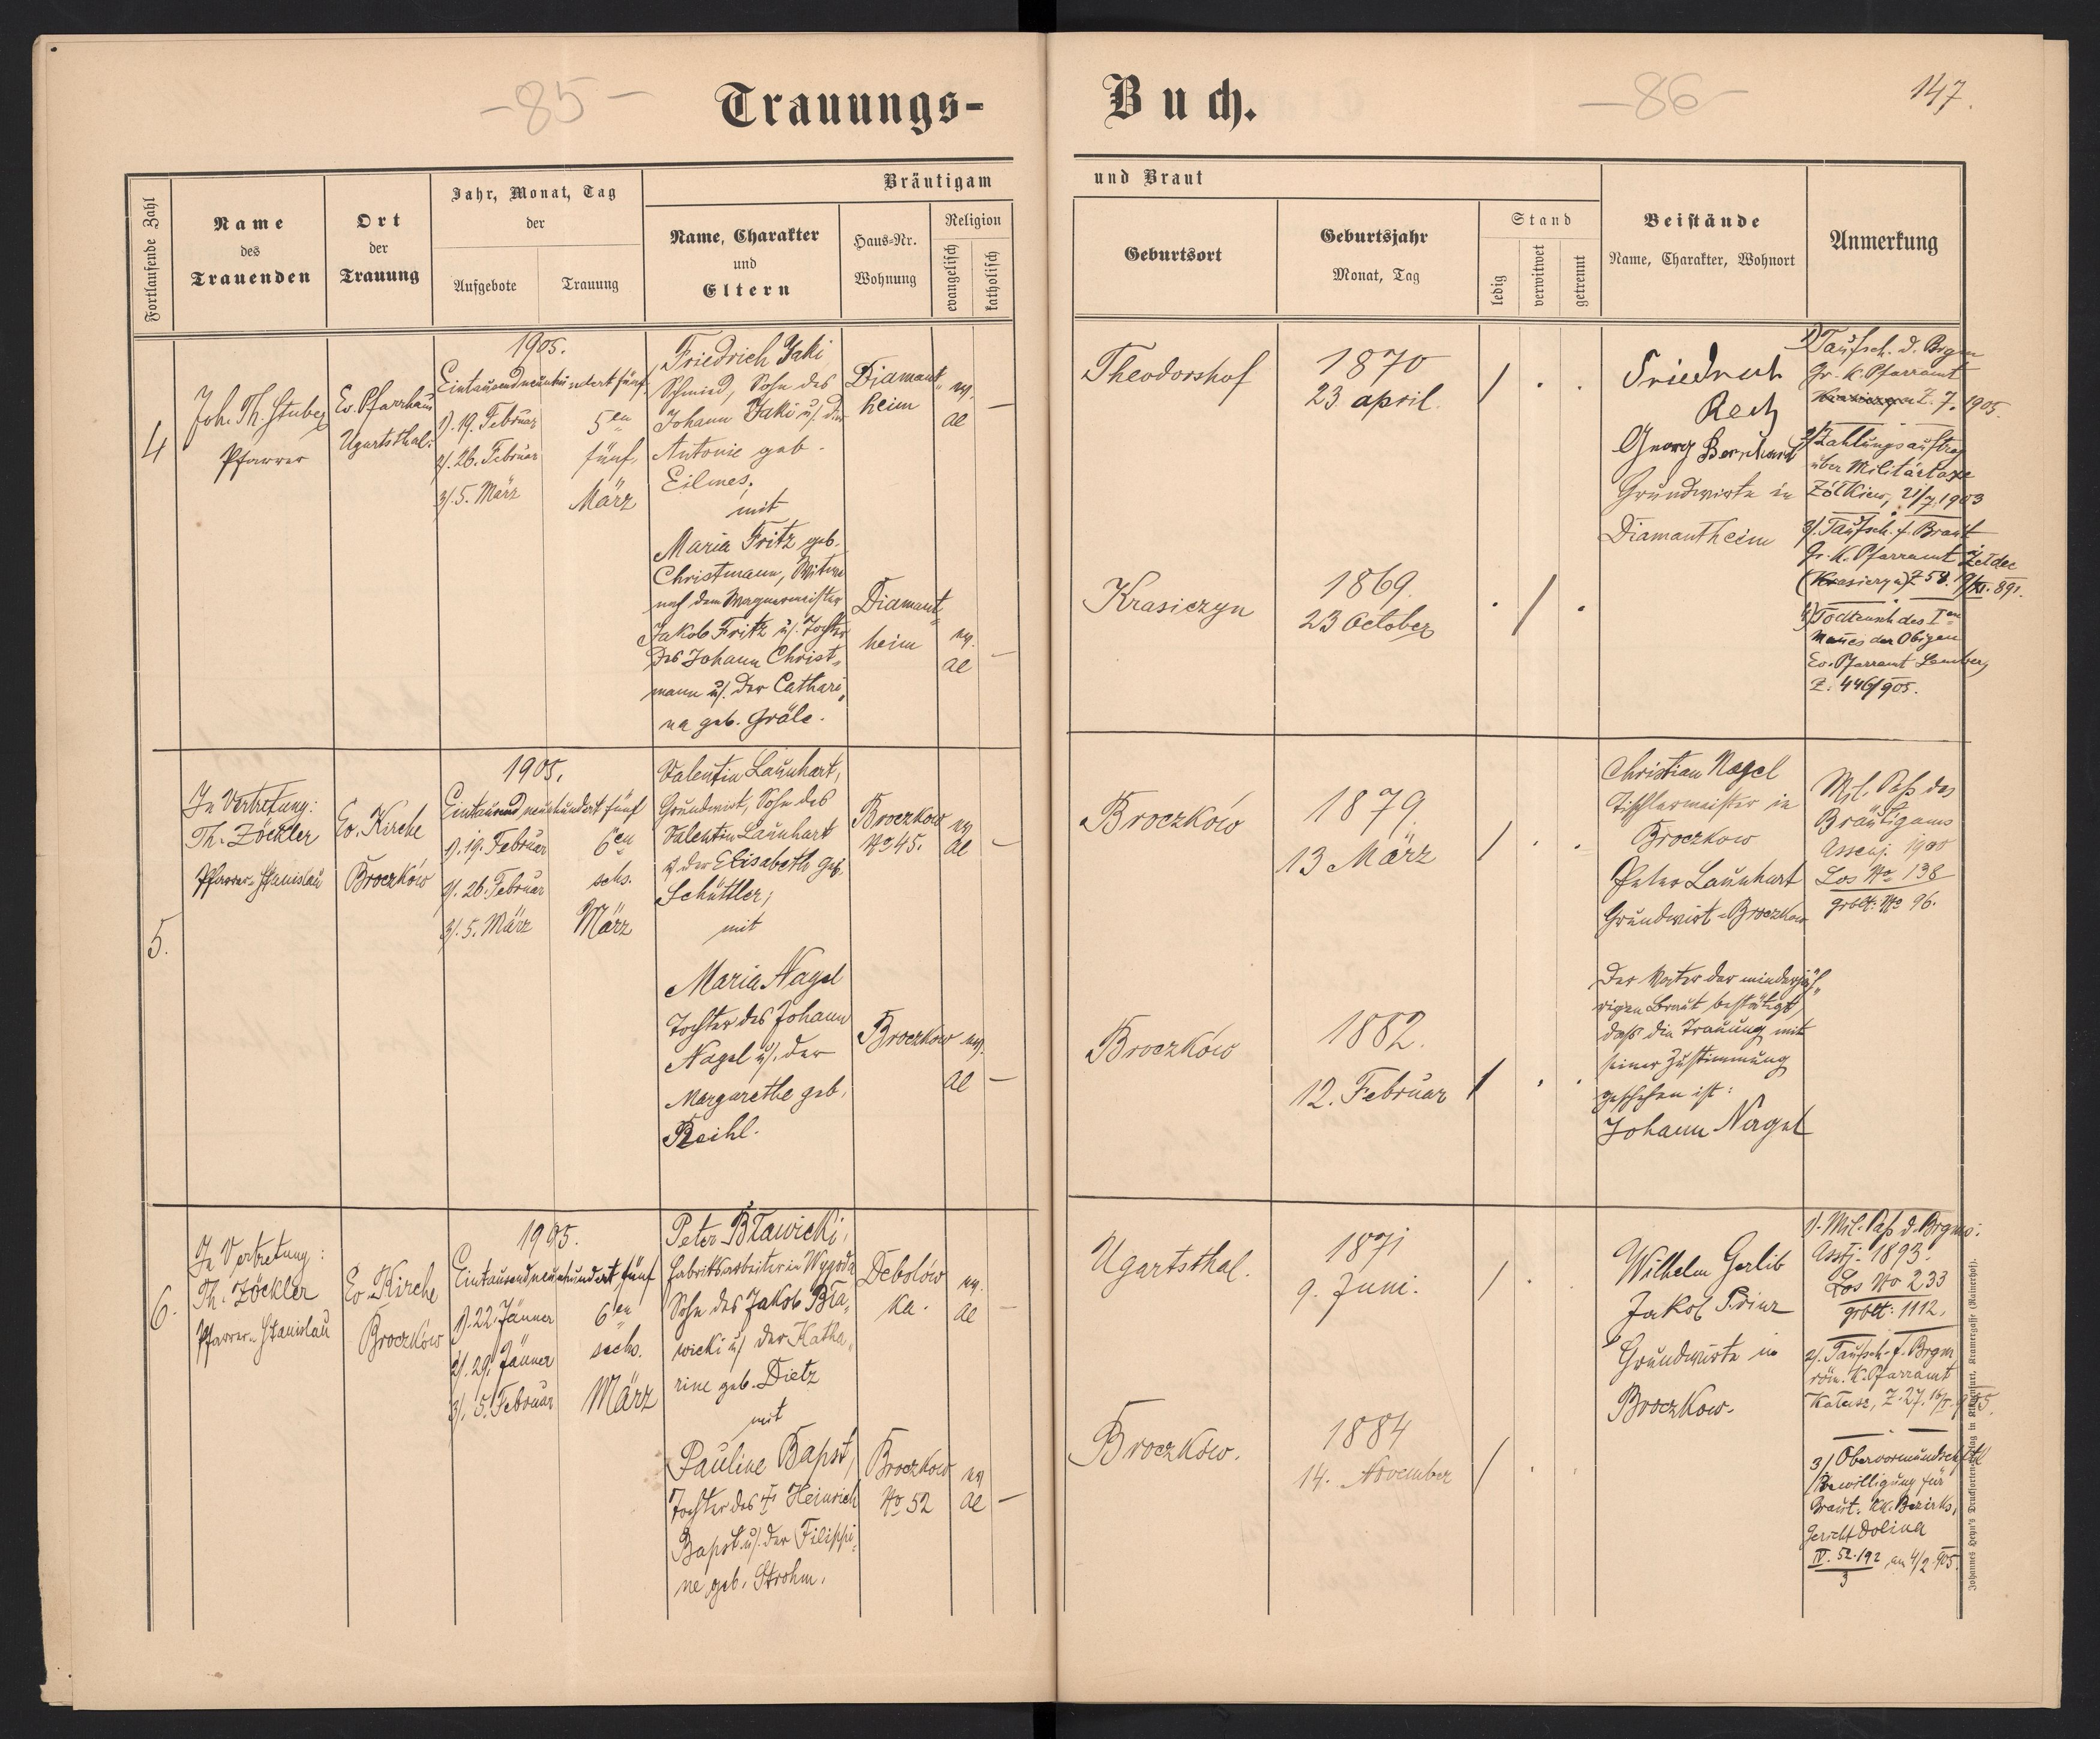 -85-
Trauungs-
Buch.
-86-
147.
Fortlaufende Zahl
Name
des
Trauenden
Ort
der
Trauung
Jahr, Monat, Tag
der
Aufgebote
Trauung
Bräutigam
Name, Charakter
und
Eltern
Haus-Nr.
Wohnung
Religion
evangelisch
katholisch
und Braut
Geburtsort
Geburtsjahr
Monat, Tag
Stand
ledig
verwitwet
getrennt
Beistände
Name, Charakter, Wohnort
Anmerkung
4
Joh. Th. Stuber
Pfarrer
Ev. Pfarrhaus
Ugartsthal.
1905.
Eintausendneunhundert fünf
1). 19. Februar
2/. 26. Februar
3/. 5. März
5en
fünf,
März
Friedrich Jaki
Schmied, Sohn des
Johann Jaki u/. der
Antonie geb.
Eilmes,
mit
Maria Fritz geb.
Christmann, Witwe
nach dem Wagnermeister
Jakob Fritz u/. Tochter
des Johann Christ„
mann u/. der Cathari„
na geb. Gräle.
Diamant„
heim
ev.
ae
—
Diamant„
heim
ev.
ae
—
Theodorshof
1870
23 april.
/ . .
Krasiczyn
1869.
23 October
. / .
Friedrich
Rech
Georg Bernhard
Grundwirte in
Diamantheim
1) Taufsch. d. Brgm
Gr. K. Pfarramt
Z. 7. 1905.
2/ Zahlungsauftrag
über Militärtaxe
Zółkiew, 21/7 1903
3/. Taufsch. f. Braut
Gr. K. Pfarramt
(Krasiczyn) Z 58. 19/XI. 891.
4) Todtensch des Ien
Mannes der Obigen
Ev. Pfarramt Lemberg
Z. 446/905.
5.
In Vertretung:
Th. Zöckler
Pfarrer - Stanislau
Ev. Kirche
Broczków
1905.
Eintausend neunhundert fünf
1). 19. Februar
2/. 26. Februar
3/. 5. März
6en
sechs.
März
Valentin Launhart,
Grundwirt, Sohn des
Valentin Launhart
u/ der Elisabeth geb.
Schüttler,
mit
Maria Nagel
Tochter des Johann
Nagel u/. der
Margarethe geb.
Reihl.
Broczkow
No 45.
ev.
ae
—
Broczkow
ev.
ae
—
Broczków
1879.
13 März
/ . .
Broczków
1882.
12. Februar
/ . .
Christian Nagel
Tischlermeister in
Broczkow
Peter Launhart
Grundwirt - Broczkow
Der Vater der minderjäh„
rigen Braut bestätigt,
dass die Trauung mit
seiner Zustimmung
geschehen ist:
Johann Nagel
Mil. Pass des
Bräutigams
Assentj. 1900
Los No 138
grblt: No 96.
6.
In Vertretung:
Th. Zöckler
Pfarrer - Stanislau
Ev. Kirche
Broczków
1905.
Eintausendneunhundert fünf
1). 22 Jänner
2/. 29. Jänner
3/. 5. Februar
6en
sechs.
März
Peter Bławicki,
Fabriksarbeiter in Wygoda
Sohn des Jakob Bła„
wicki u/ der Katha„
rine geb. Dietz
mit
Pauline Bapst,
Tochter des † Heinrich
Bapst u/. der Filippi„
ne geb. Strohm.
Debolów
ka.
ev.
ae
—
Broczkow
No 52
ev
ae
—
Ugartsthal.
1871
9. Juni.
/ . .
Broczkow.
1884
14. November
/ . .
Wilhelm Gerlib
Jakob Prinz
Grundwirte in
Broczkow.
1/. Mil. Pass d. Brgms:
Asstj. 1893.
Los No 233
grblt: 1112.
2/. Taufsch. f. Brgm
röm. K. Pfarramt
Kałusz, Z. 27.
3/ Obervormundschaftl
Bewilligung für
Braut: KK. Bezirks„
gericht Dolina
IV. 52.192 am 4/2. 905.
3
Johannes Heyn's Drucksortenverlag in Klagenfurt, Kramergasse (Rainerhof).